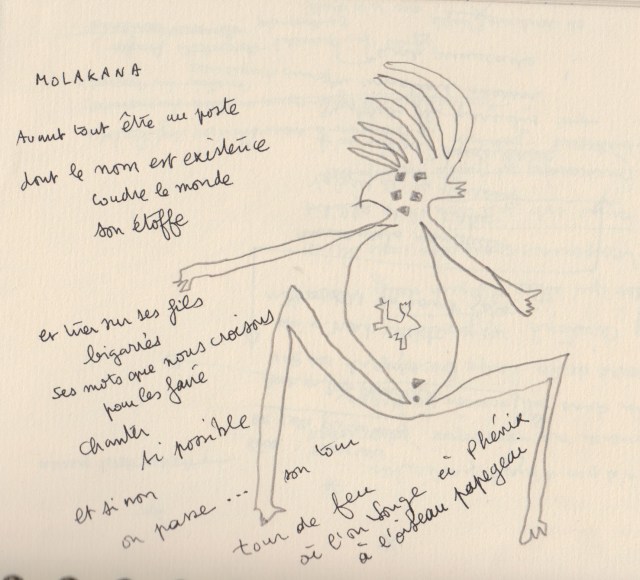 MOLAKANA
Avant tout être au poste
dont le nom est existence
coudre le monde
son étoffe
et tirer sur ses fils
bigarrés
ses mots que nous croisons
pour les faire
chanter
si possible
et si non
on passe ... son tour
tour de feu
où l'on songe ei Phénix
à l'oiseau papegeai